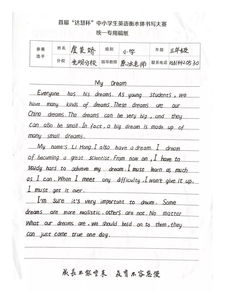 首届“达慧杯”中小学生英语衡水体书写大赛
统一专用稿纸
小学
三年级
My Dream
Everyone has his dreams. As young students, we
have many kinds of dreams. These dreams are our
China dreams. The dreams can be very big, and they
can also be small. In fact, a big dream is made up of
many small dreams.
My name's Li Hong. I also have a dream. I dream
of becoming a great scientist. From now on, I have to
study hard to achieve my dream. I must learn as much
as I can. When I meet any difficulty, I won't give it up.
I must get over it.
I'm sure it's very important to dream. Some
dreams are more realistic. Others are not. No matter
What our dreams are, we should hold on to them, they
can just come true one day.
成长不能等待 教育不容怠慢